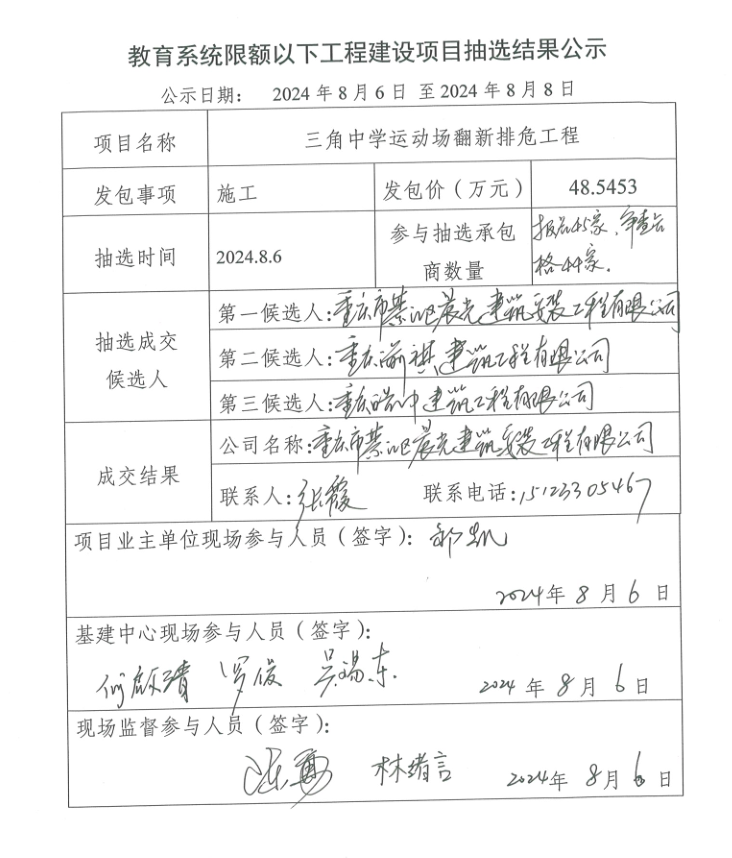 教育系统限额以下工程建设项目抽选结果公示
公示日期： 2024 年 8 月 6 日 至 2024 年 8 月 8 日
项目名称 三角中学运动场翻新排危工程
发包事项 施工 发包价（万元） 48.5453
抽选时间 2024.8.6 参与抽选承包商数量 报名45家，审查合格44家.
抽选成交候选人
第一候选人：重庆市綦江区晨光建筑安装工程有限公司
第二候选人：重庆渝祺建筑工程有限公司
第三候选人：重庆 建筑工程有限公司
成交结果
公司名称：重庆市綦江区晨光建筑安装工程有限公司
联系人：张霞 联系电话：15123305467
项目业主单位现场参与人员（签字）： 凯
2024年 8 月 6 日
基建中心现场参与人员（签字）：
罗俊 吴锡东
2024 年 8 月 6 日
现场监督参与人员（签字）：
林绪言 2024年 8 月 6 日